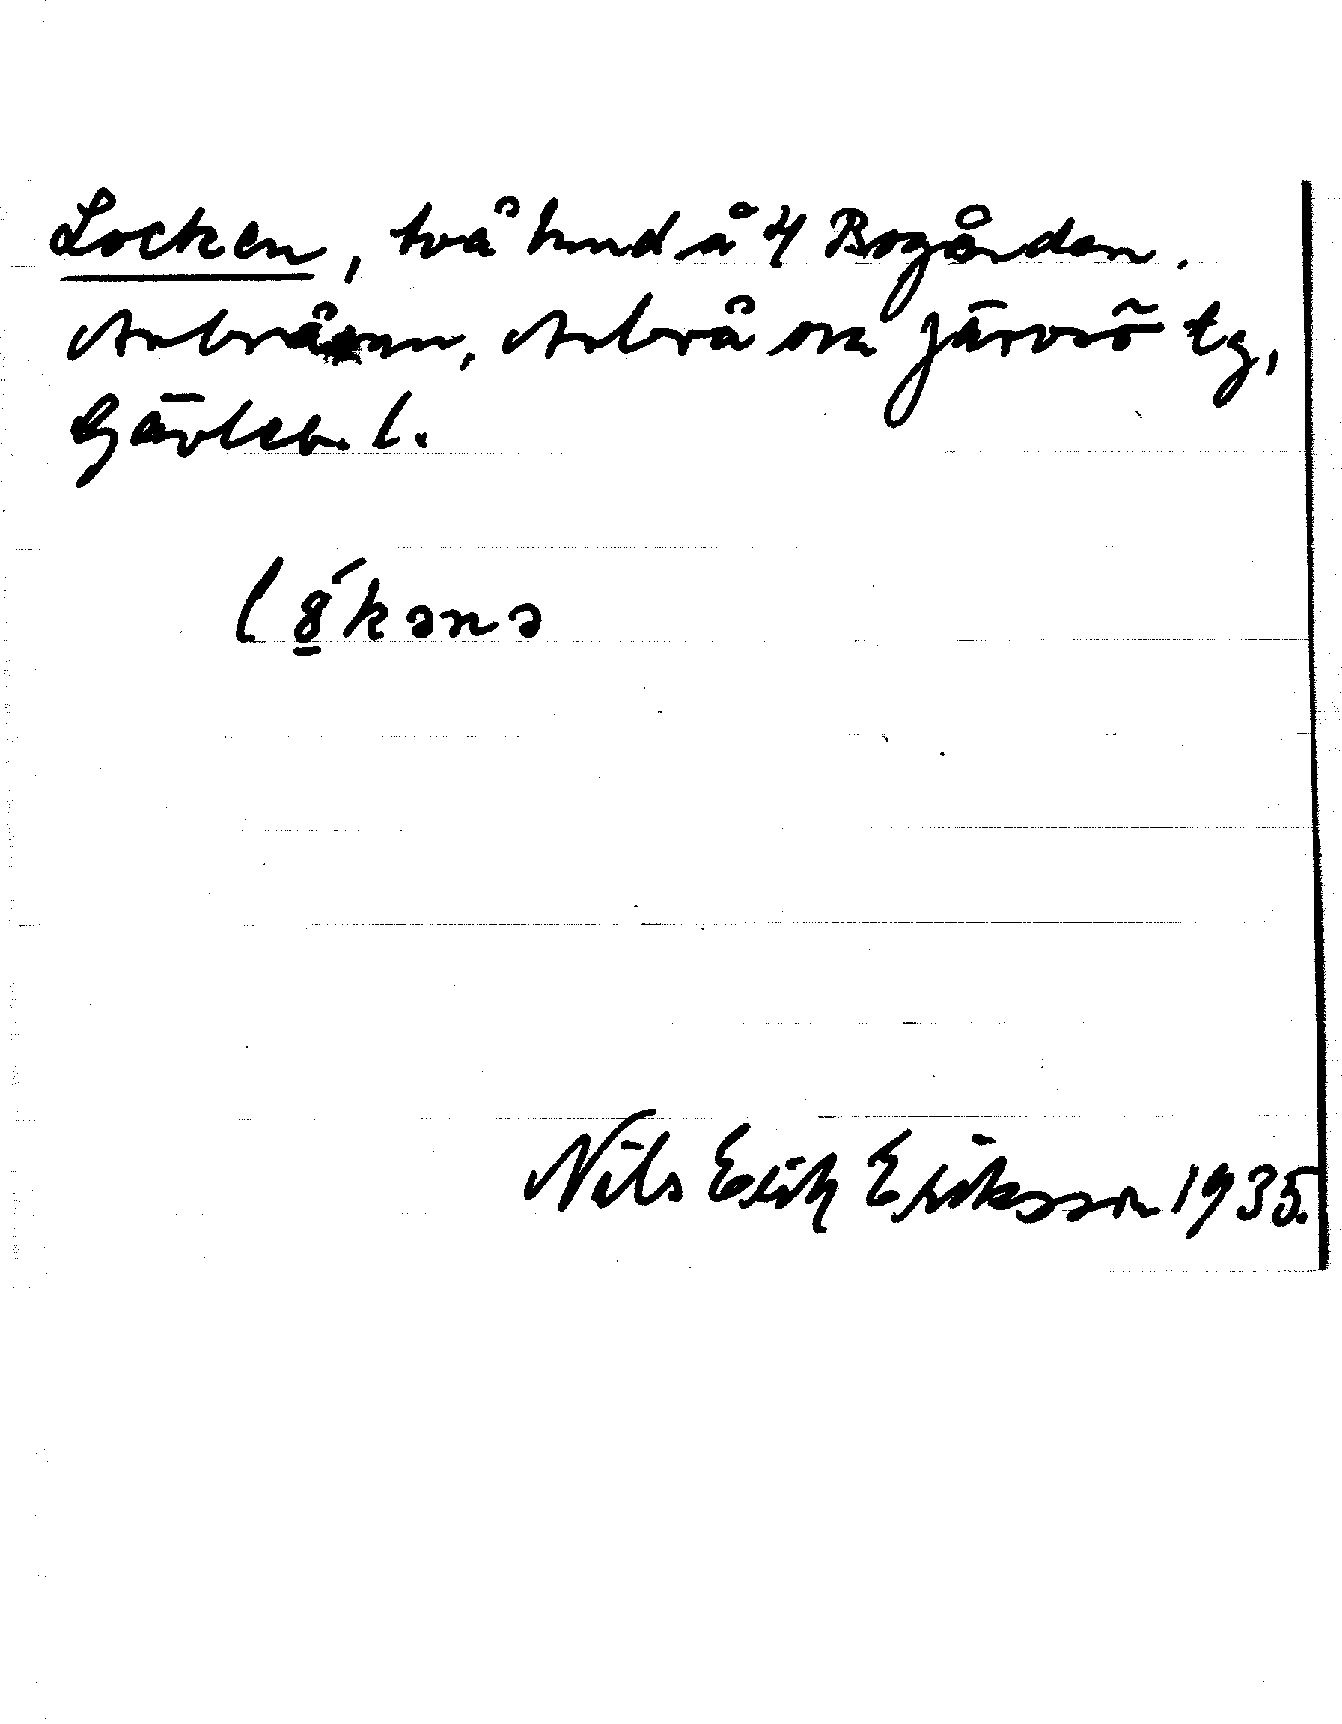 Locken, två hmd å 4 Bogården.
Arbråsnn, Arbrå ova Järvsö tg,
Gävleb. l.
lo̱´kənə
Nils Erik Eriksson 1935.